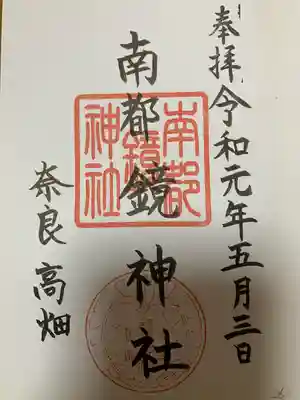 奉拝令和元年五月三日
南都鏡神社
南都鏡神社
奈良高畑